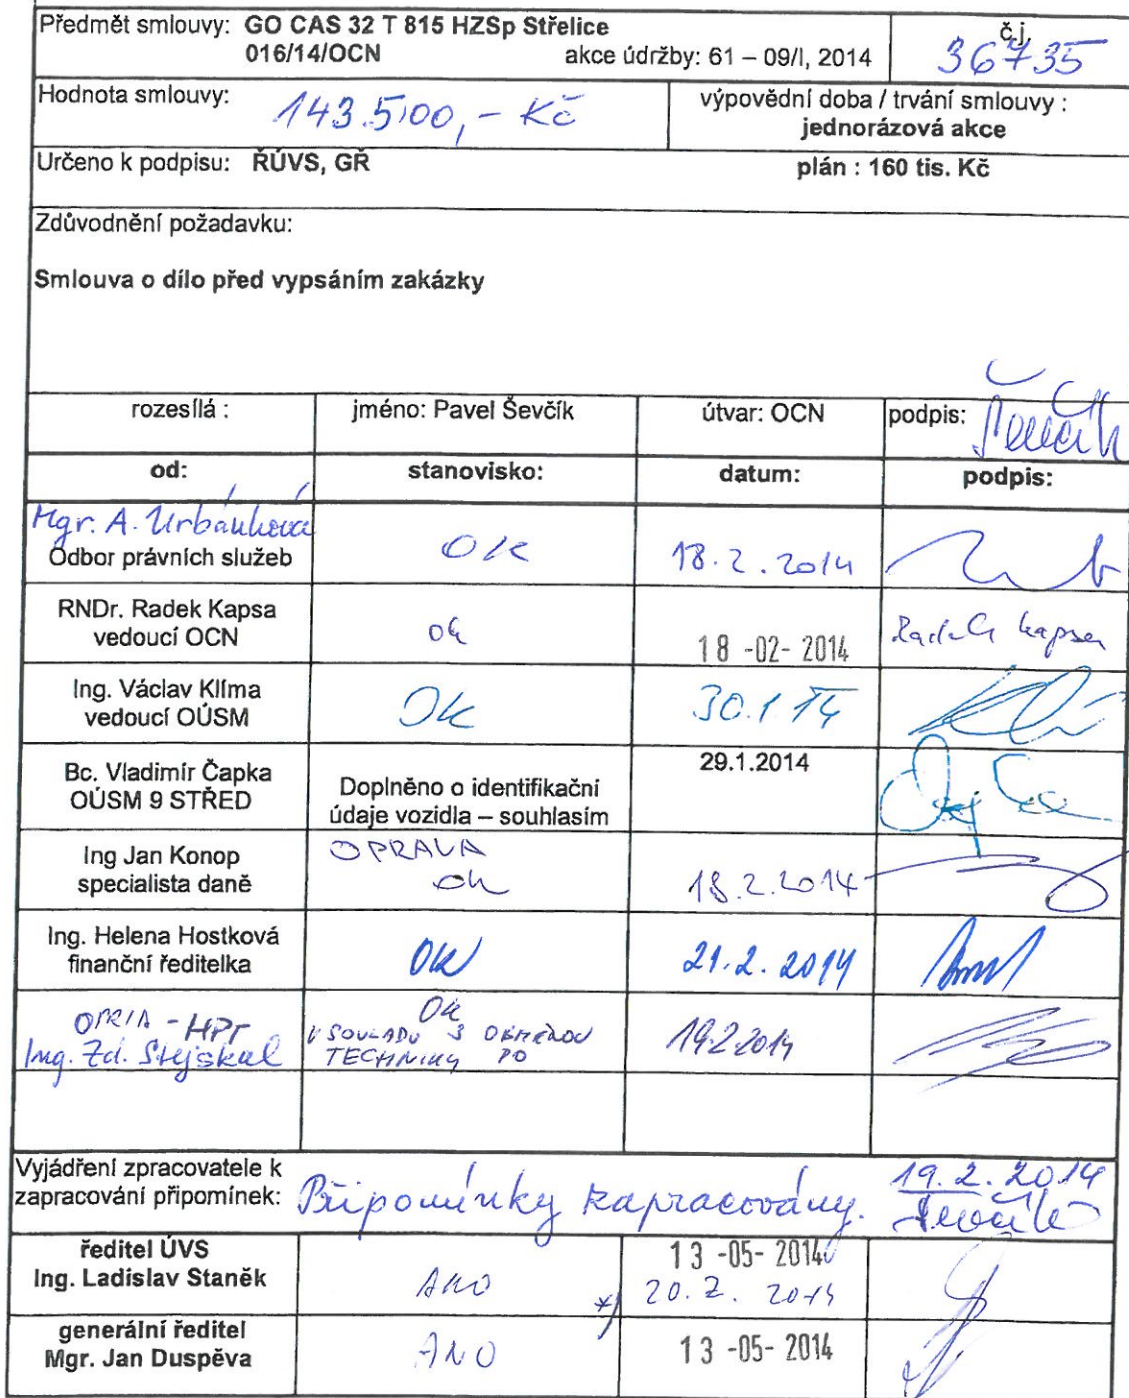 Předmět smlouvy: GO CAS 32 T 815 HZSp Střelice
016/14/OCN akce údržby: 61 – 09/I, 2014
č.j.
36735
Hodnota smlouvy: 143.500,- Kč
výpovědní doba / trvání smlouvy :
jednorázová akce
Určeno k podpisu: ŘÚVS, GŘ plán : 160 tis. Kč
Zdůvodnění požadavku:
Smlouva o dílo před vypsáním zakázky
rozesílá : jméno: Pavel Ševčík útvar: OCN podpis: Ševčík
od: stanovisko: datum: podpis:
Mgr. A. Urbánková
Odbor právních služeb OK 18.2.2014
RNDr. Radek Kapsa
vedoucí OCN ok 18 -02- 2014 Radek Kapsa
Ing. Václav Klíma
vedoucí OÚSM Ok 30.1 14
Bc. Vladimír Čapka
OÚSM 9 STŘED
Doplněno o identifikační
údaje vozidla – souhlasím
29.1.2014
Ing Jan Konop
specialista daně
OPRAVA
ok
18.2.2014
Ing. Helena Hostková
finanční ředitelka OK 21.2.2014
- HPT
Ing. Zd. Stejskal
Ok
V SOULADU S OBMĚNOU
TECHNIKY PO
19.2.2014
Vyjádření zpracovatele k
zapracování připomínek: Připomínky zapracovány. 19.2.2014
Ševčík
ředitel ÚVS
Ing. Ladislav Staněk
ANO
13 -05- 2014
*) 20.2. 2014
generální ředitel
Mgr. Jan Duspěva
ANO
13 -05- 2014